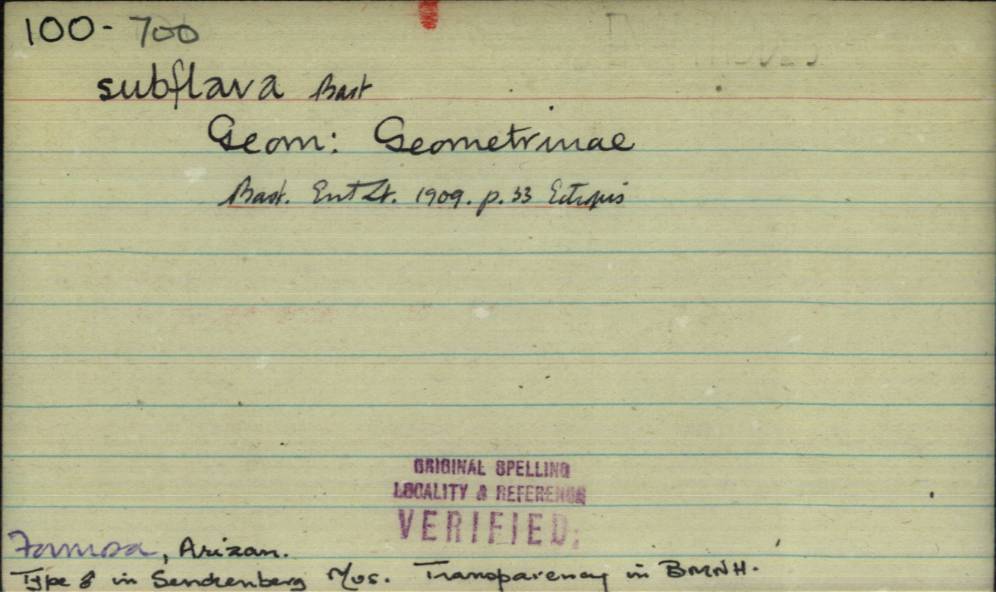 100-700
subflava Bast
Geom: Geometrinae
Bast. Ent Zt. 1909. p. 33 Ectropis
ORIGINAL SPELLING
LOCALITY & REFERENCE
VERIFIED.
Formosa, Arizan.
Type ♂ in Senckenberg Mus. Transparency in BMNH.